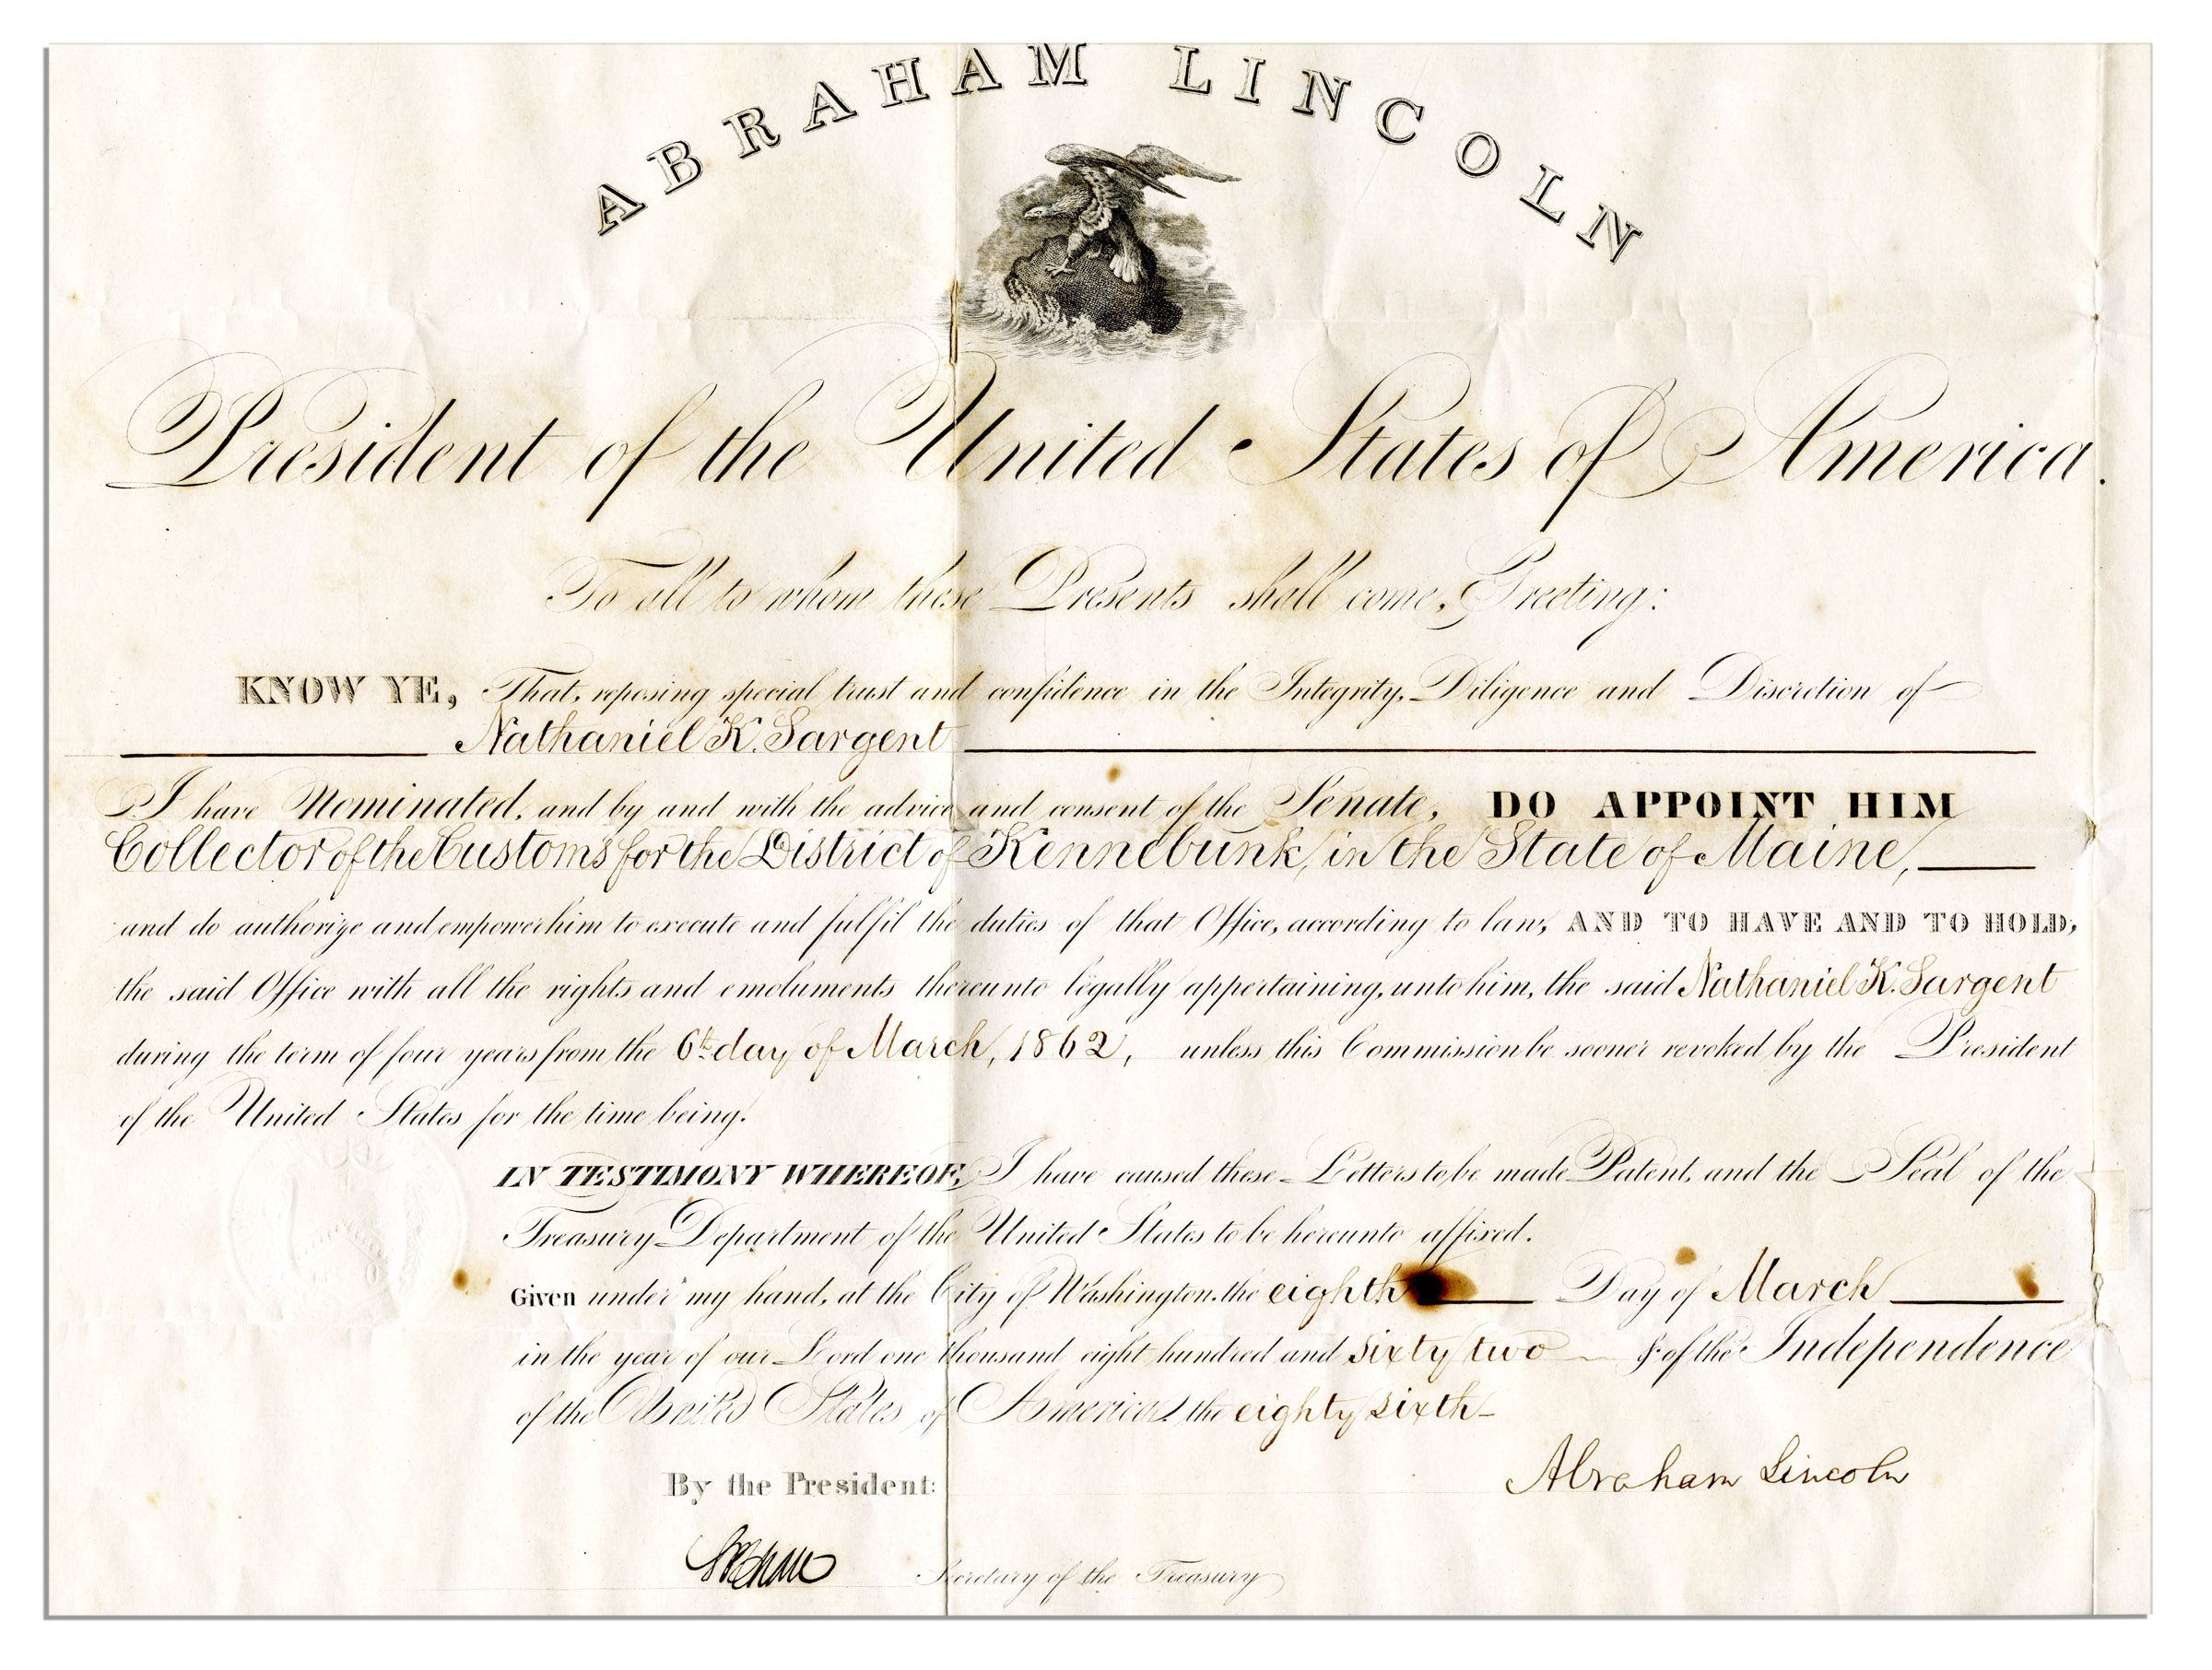 ABRAHAM LINCOLN
President of the United States of America.
To all to whom these Presents shall come, Greeting:
KNOW YE, That, reposing special trust and confidence in the Integrity, Diligence and Discretion of
Nathaniel K. Sargent
I have Nominated, and by and with the advice and consent of the Senate, DO APPOINT HIM
Collector of the Customs for the District of Kennebunk, in the State of Maine,
and do authorize and empower him to execute and fulfil the duties of that Office, according to law, AND TO HAVE AND TO HOLD,
the said Office with all the rights and emoluments thereunto legally appertaining, unto him, the said Nathaniel K. Sargent
during the term of four years from the 6th day of March, 1862, unless this Commission be sooner revoked by the President
of the United States for the time being.
IN TESTIMONY WHEREOF, I have caused these Letters to be made Patent, and the Seal of the
Treasury Department of the United States to be hereunto affixed.
Given under my hand, at the City of Washington, the eighth Day of March
in the year of our Lord one thousand eight hundred and sixty two & of the Independence
of the United States of America, the eighty sixth
Abraham Lincoln
By the President:
SPChase Secretary of the Treasury